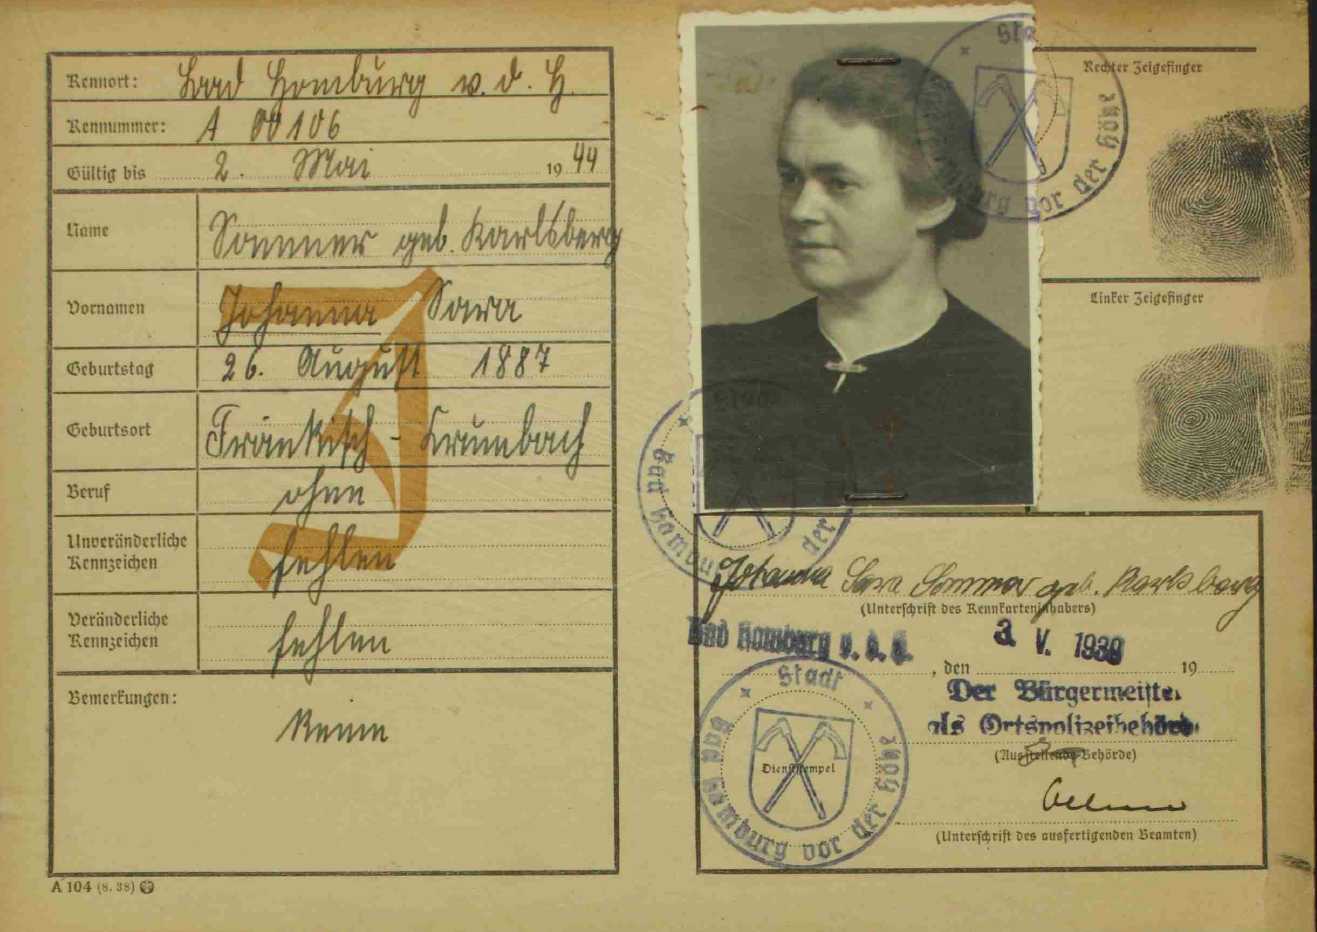 Kennort: Bad Homburg v. d. H.
Kennummer: A 00106
Gültig bis 2. Mai 1944
Name Sommer geb. Karlsberg
Vornamen Johanna Sara
Geburtstag 26. August 1887
Geburtsort Fränkisch-Crumbach
Beruf ohne
Unveränderliche
Kennzeichen fehlen
Veränderliche
Kennzeichen fehlen
Bemerkungen:
Keine
A 104 (8. 38)
J
Rechter Zeigefinger
Linker Zeigefinger
Stadt Bad Homburg vor der Höhe
Stadt Bad Homburg vor der Höhe
Johanna Sara Sommer geb. Karlsberg
(Unterschrift des Kennkarteninhabers)
Bad Homburg v. d. H., den V. 1939 19
Der Bürgermeister
als Ortspolizeibehörde
(Ausstellende Behörde)
Stadt Bad Homburg vor der Höhe
Dienststempel
(Unterschrift des ausfertigenden Beamten)